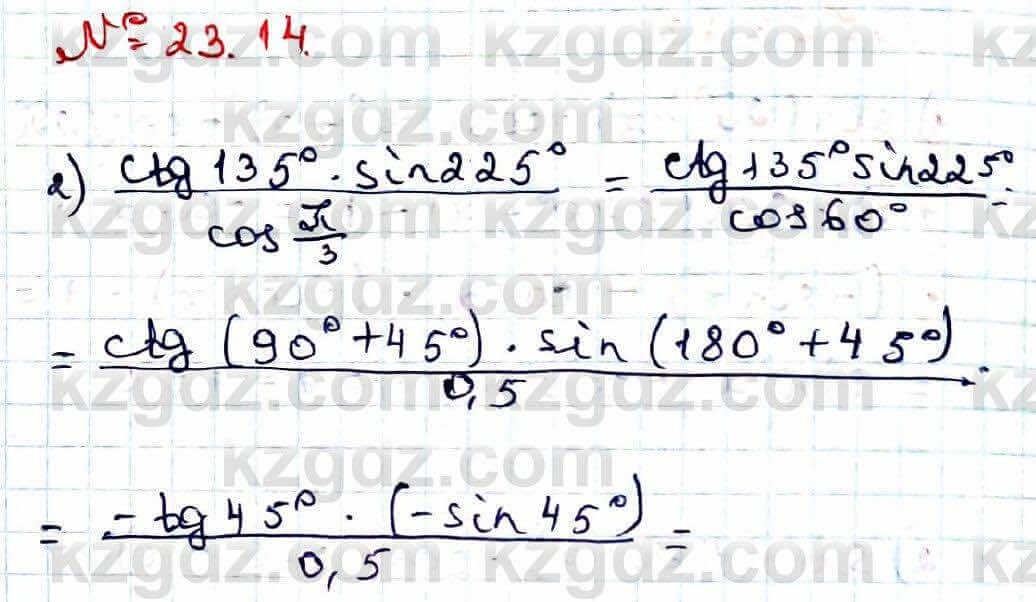 № 23.14.
kzgdz.com kzgdz.com kz
kzgdz.com
а) ctg 135° · sin 225° / cos π/3 = ctg 135° sin 225° / cos 60° =
kzgdz.com kzgdz.com kz
kzgdz.com
= ctg (90° + 45°) · sin (180° + 45°) / 0,5
kzgdz.com kzgdz.com kz
kzgdz.com
= - tg 45° · (- sin 45°) / 0,5 =
kzgdz.com kzgdz.com kz